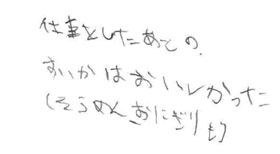 仕事をしたあとの、
すいかはおいしかった
(そうめん おにぎりも)